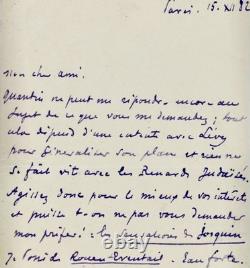 Paris. 15. XII 82
mon cher ami.
Quantin ne peut me répondre encore au
sujet de ce que vous me demandez ; tout
cela dépend d'une entente avec Lévy
pour généraliser son plan et rien ne
se fait vite avec les Renards Judaïsés.
Agissez donc pour le mieux de vos intérêts
et puisse-t-on ne pas vous demander
mon préféré : les sensations de Josquin
Je Rouen-Eventail. Eau forte.